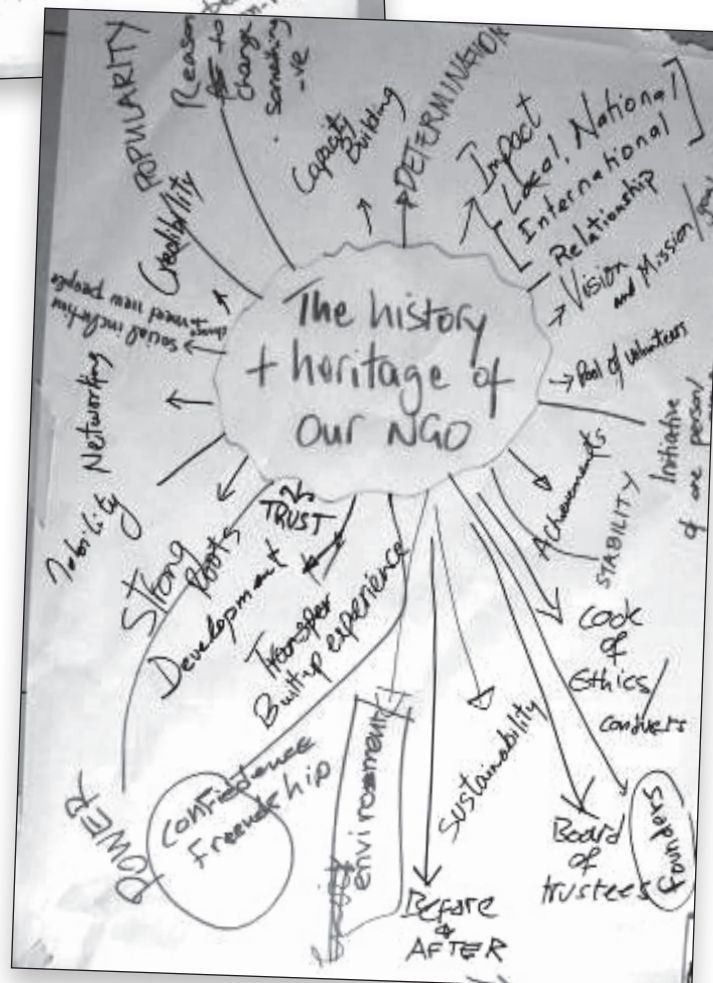 The history
+ heritage of
Our NGO
POPULARITY
Reason
to
change
something
-ve
Capacity
Building
DETERMINATION
Impact
[Local, National]
International
Relationship
Vision
and Mission/
Pool of volunteers
Initiative
of one person/
Achievements
STABILITY
Cook
of
Ethics/
Founders
Board
of
trustees
Sustainability
Before
&
AFTER
environment
Confiedence
Freendship
POWER
Built up experience
Transfer
Development
TRUST
Strong
Roots
Networking
social inclusion
+ meet new people
Credibility